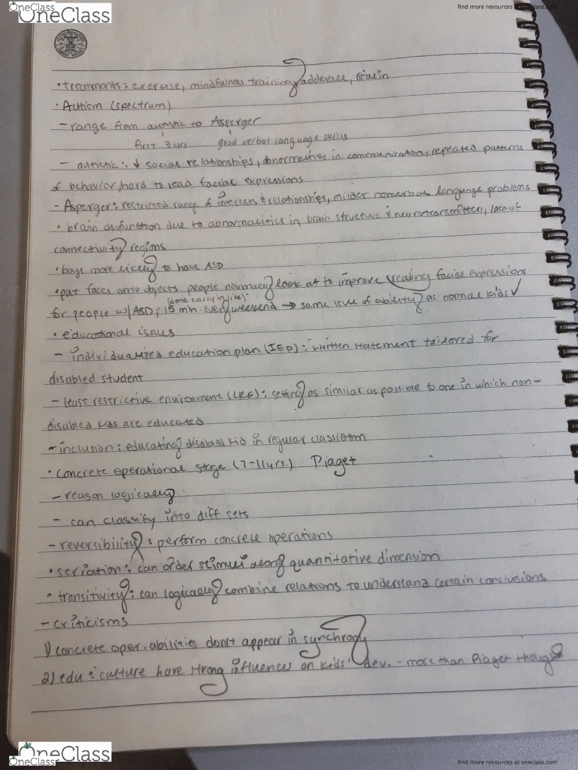 OneClass
find more resources at oneclass.com
• treatments: exercise, mindfulness training, adderall, ritalin
• Autism (spectrum)
- range from autistic to Asperger
first 3 yrs good verbal language skills
- autistic: ↓ social relationships, abnormalities in communication, repeated patterns
of behavior, hard to read facial expressions
- Asperger: restricted range of interests & relationships, milder nonverbal language problems
• brain disfunction due to abnormalities in brain structure & neurotransmitters, lack of
connectivity regions
• boys more likely to have ASD
• put faces onto objects people normally look at to improve reading facial expressions
for people w/ASD, 15 min every weekend → same level of ability as normal kids ✓
• educational issues
- individualized education plan (IEP): written statement tailored for
disabled student
- least restrictive environment (LRE): setting as similar as possible to one in which non-
disabled kids are educated
- inclusion: educating disabled kid in regular classroom
• concrete operational stage (7-11 yrs.) Piaget
- reason logically
- can classify into diff sets
- reversibility: perform concrete operations
• seriation: can order stimuli along quantitative dimension
• transitivity: can logically combine relations to understand certain conclusions
- criticisms
1) concrete oper. abilities don't appear in synchrony
2) edu & culture have strong influences on kids' dev. - more than Piaget thought
OneClass
find more resources at oneclass.com